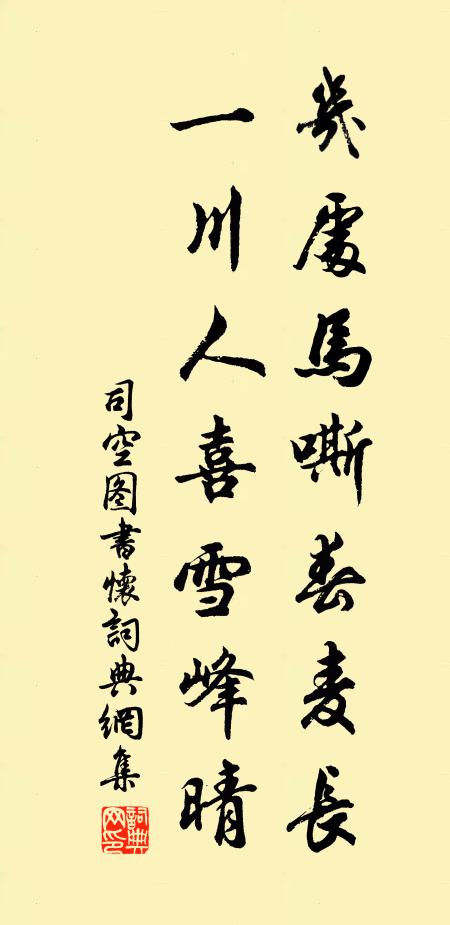 幾處馬嘶春麦長
一川人喜雪峰晴
司空图書懷詞典網集
詞典網印